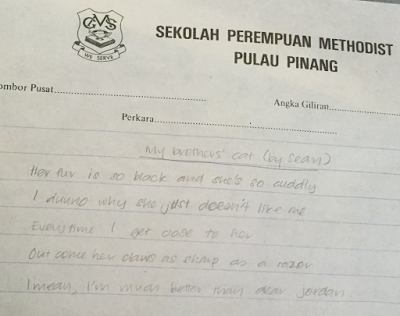 GMS
WE SERVE
SEKOLAH PEREMPUAN METHODIST
PULAU PINANG
ombor Pusat
Angka Giliran
Perkara
My brothers' cat (by Sean)
Her fur is so black and she's so cuddly
I dunno why she just doesn't like me
Everytime I get close to her
Out come her claws as sharp as a razor
I mean, I'm much better than dear Jordan.